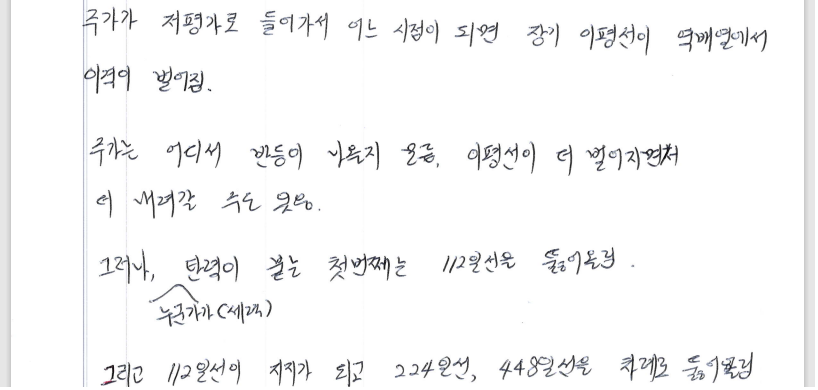 주가가 저평가로 들어가서 어느 시점이 되면 장기 이평선이 역배열에서
이격이 벌어짐.
주가는 어디서 반등이 나올지 모름, 이평선이 더 벌어지면서
더 내려갈 수도 있음.
그러나, 탄력이 붙는 첫번째는 112일선을 뚫어올림.
누군가가(세력)
그리고 112일선이 지지가 되고 224일선, 448일선을 차례로 뚫어올림